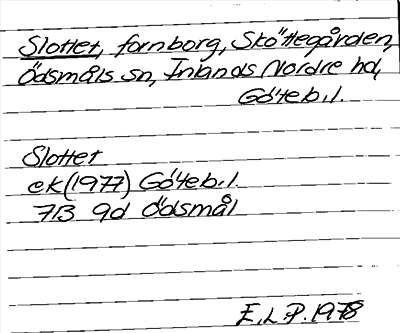 Slottet, fornborg, Sköttegården,
Ödsmåls sn, Inlands Nordre hd,
Göteb.l.
Slottet
ek(1977) Göteb.l.
7B 9d Ödsmål
E.L.P. 1978